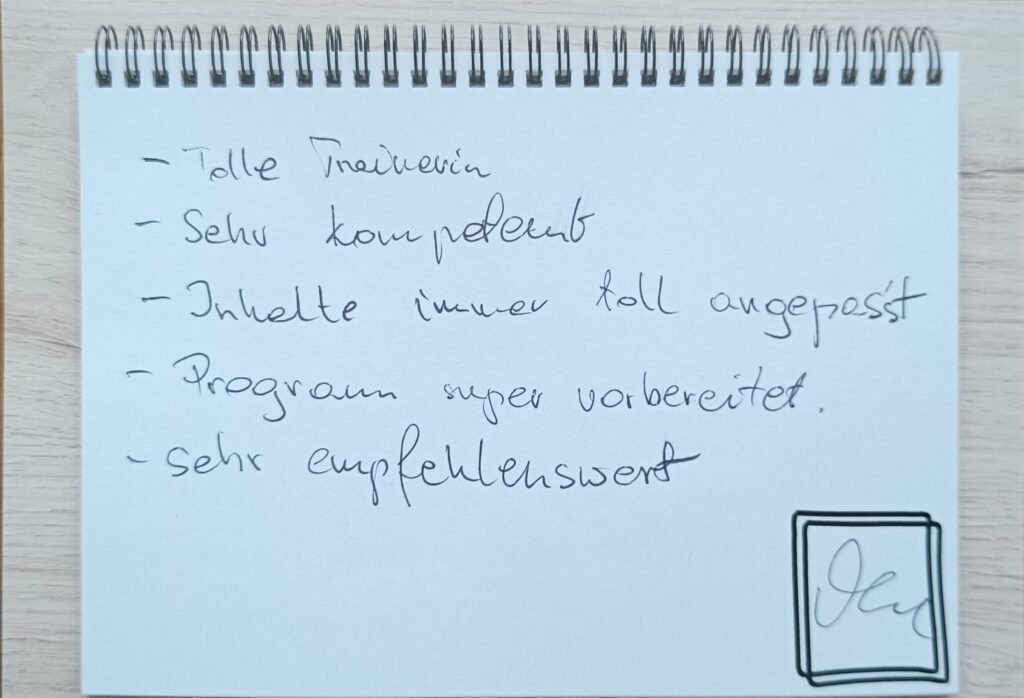 - Tolle Trainerin
- Sehr kompetent
- Inhalte immer toll angepasst
- Programm super vorbereitet.
- sehr empfehlenswert